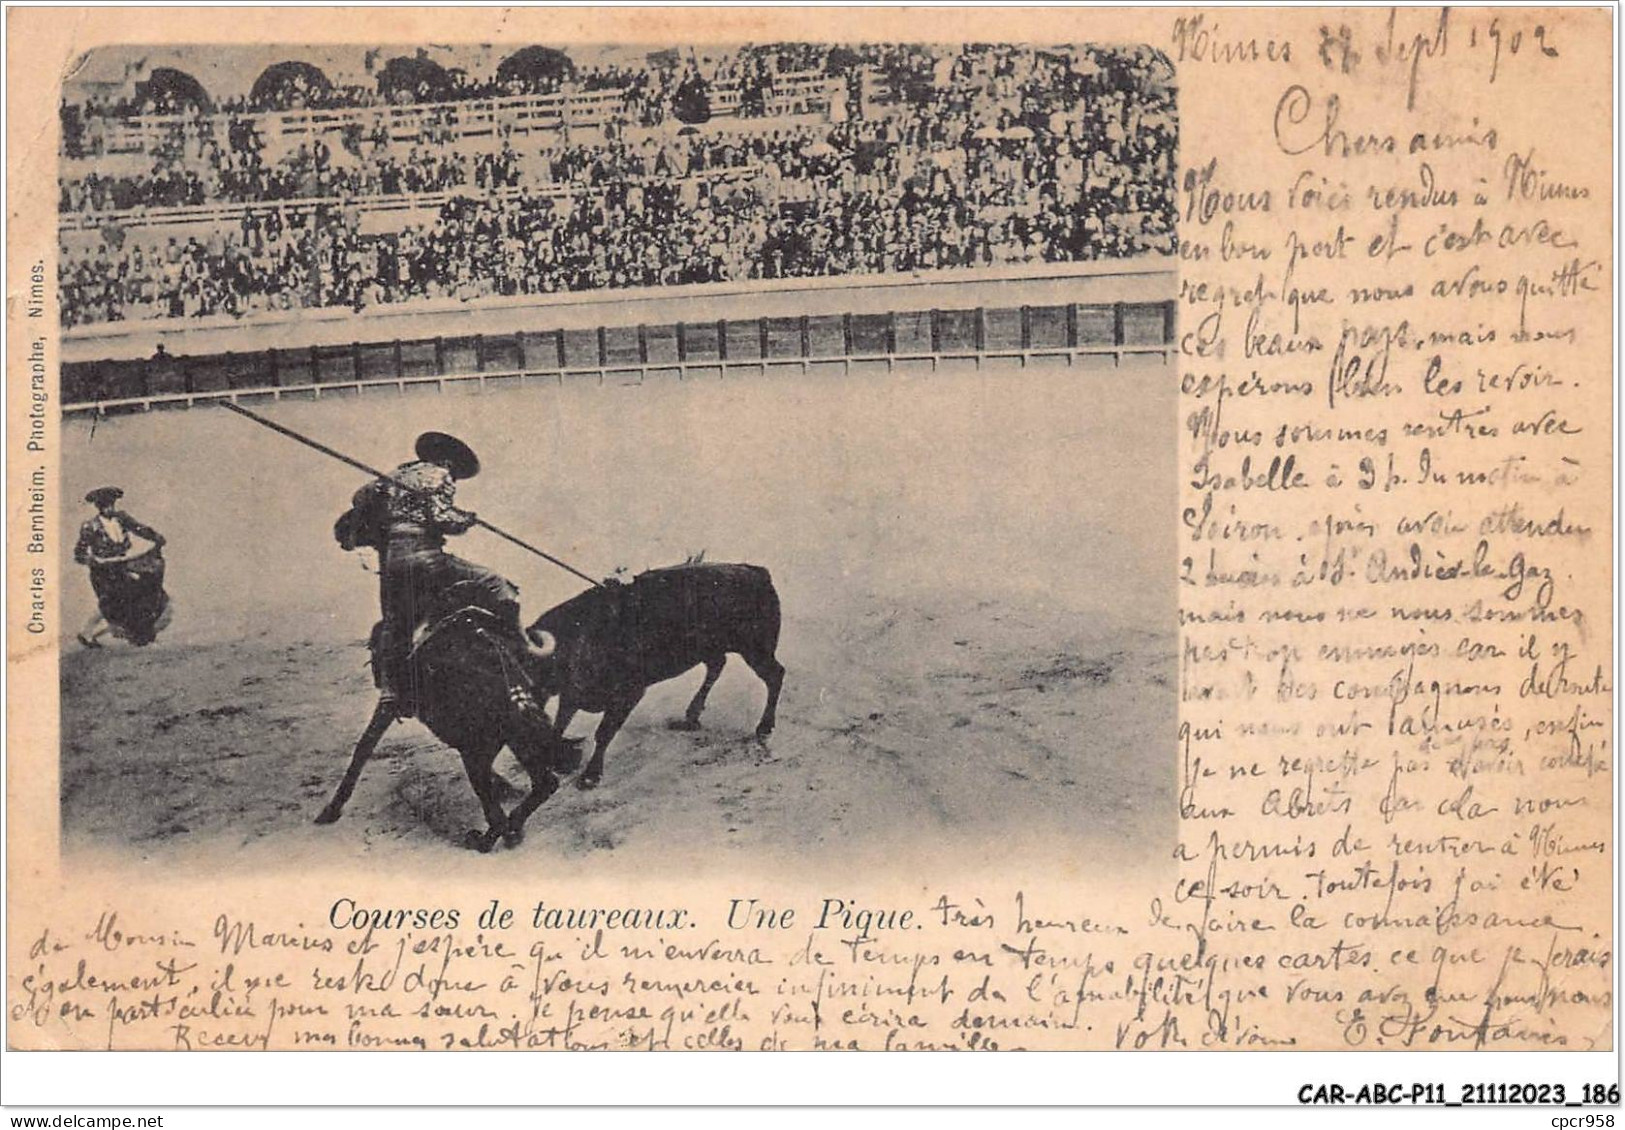 Nimes 22 Sept 1902
Chers amis
Nous voici rendus à Nimes
en bon port et c'est avec
regret que nous avons quitté
ces beaux pays, mais nous
espérons bien les revoir.
Nous sommes rentrés avec
Isabelle à 3 h. du matin à
après avoir attendu
2 heures à St. Andéx-le-Gaz
mais nous ne nous sommes
pas trop ennuyés car il y
avait des compagnons de route
qui nous ont amusés, enfin
je ne regrette pas
aux Abrets car cela nous
a permis de rentrer à Nimes
ce soir. Toutefois j'ai été
très heureux de faire la connaissance
de Marius et j'espère qu'il m'enverra de temps en temps quelques cartes ce que je ferais
également, il me reste donc à vous remercier infiniment de l'amabilité que vous avez eu pour nous
et en particulier pour ma sœur. je pense qu'elle vous écrira demain.
Recevez mes bonnes salutations et celles de ma famille
Votre dévoué E. Fontanès
Courses de taureaux. Une Pique.
Charles Bernheim. Photographe, Nimes.
CAR-ABC-P11_21112023_186
cpcr958